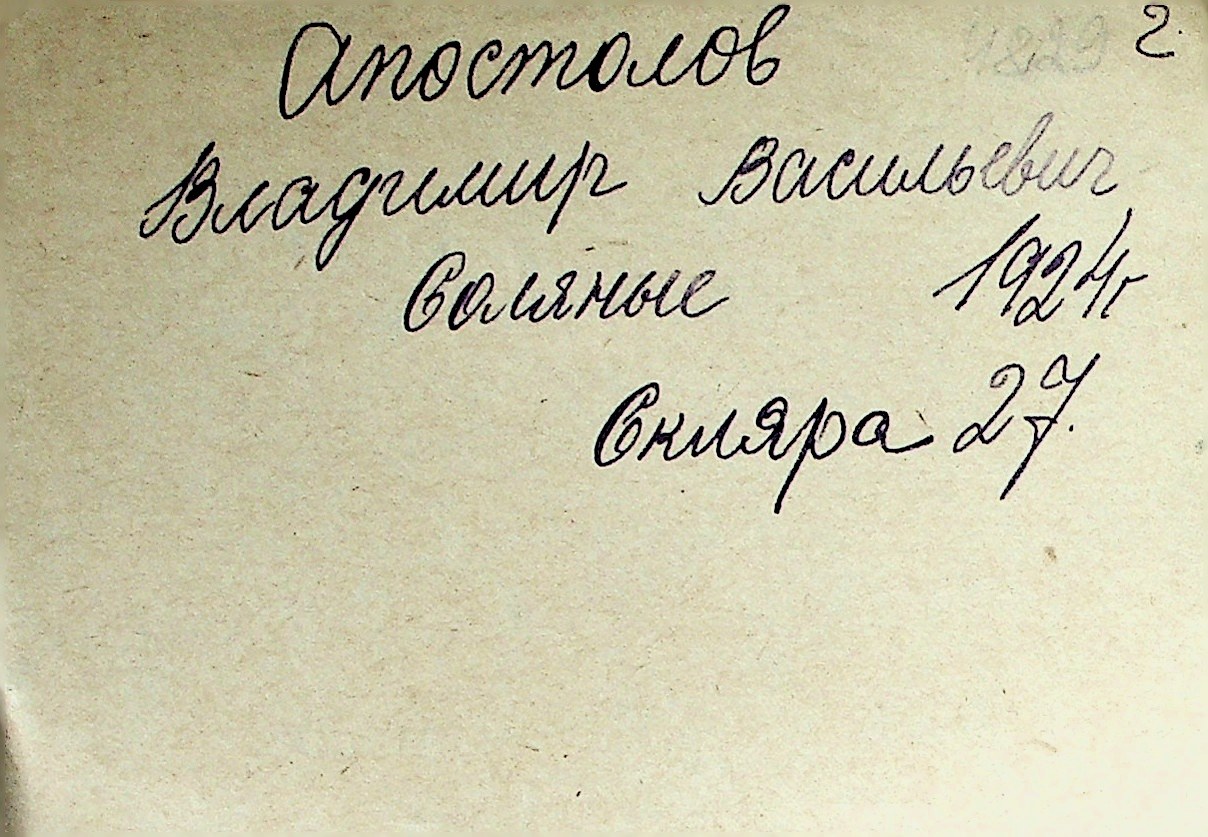 Апостолов 4829 2.
Владимир Васильевич
Соляные 1924г
Скляра 27.